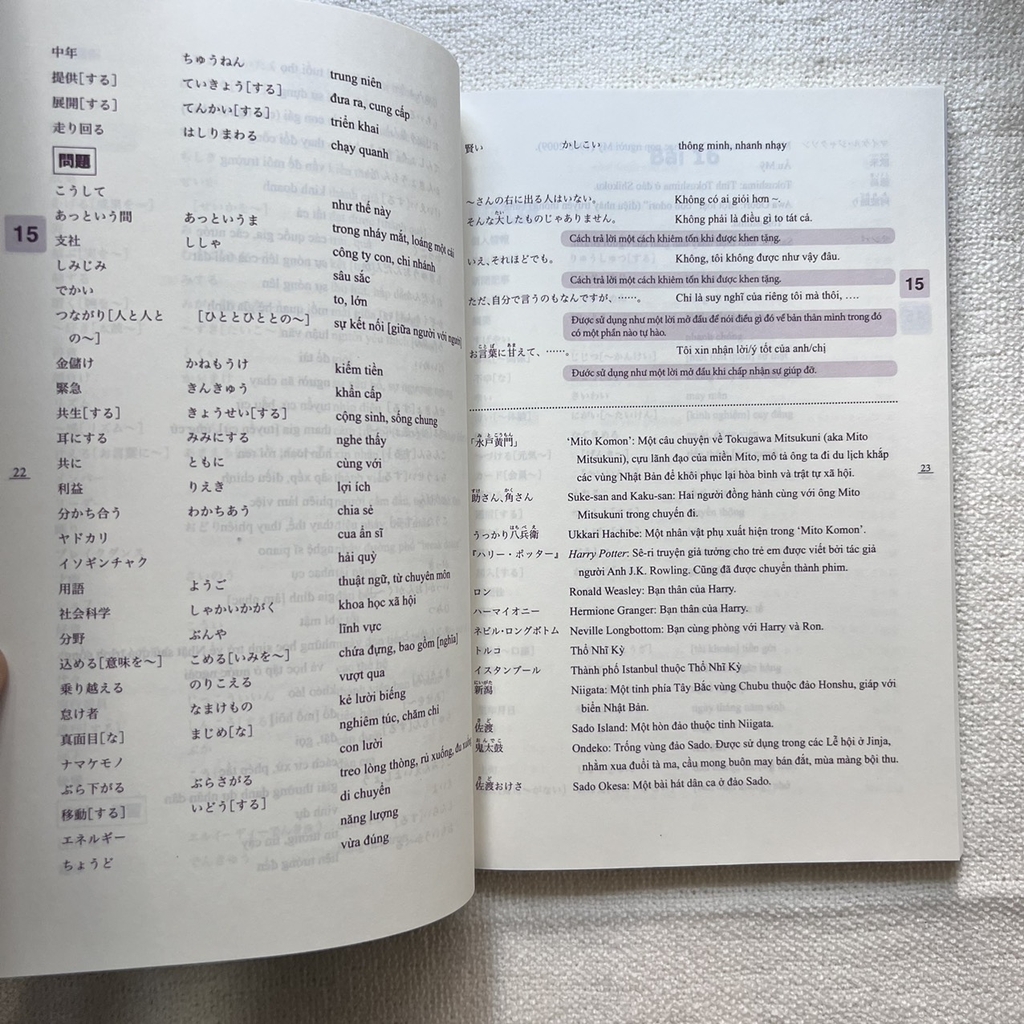 中年 ちゅうねん trung niên
提供[する] ていきょう[する] đưa ra, cung cấp
展開[する] てんかい[する] triển khai
走り回る はしりまわる chạy quanh
問題
こうして như thế này
あっという間 あっというま trong nháy mắt, loáng một cái
支社 ししゃ công ty con, chi nhánh
しみじみ sâu sắc
でかい to, lớn
つながり[人と人と [ひととひととの〜] sự kết nối [giữa người với người]
の〜]
金儲け かねもうけ kiếm tiền
緊急 きんきゅう khẩn cấp
共生[する] きょうせい[する] cộng sinh, sống chung
耳にする みみにする nghe thấy
共に ともに cùng với
利益 りえき lợi ích
分かち合う わかちあう chia sẻ
ヤドカリ cua ẩn sĩ
イソギンチャク hải quỳ
用語 ようご thuật ngữ, từ chuyên môn
社会科学 しゃかいかがく khoa học xã hội
分野 ぶんや lĩnh vực
込める[意味を〜] こめる[いみを〜] chứa đựng, bao gồm [nghĩa]
乗り越える のりこえる vượt qua
怠け者 なまけもの kẻ lười biếng
真面目[な] まじめ[な] nghiêm túc, chăm chỉ
ナマケモノ con lười
ぶら下がる ぶらさがる treo lòng thòng, rủ xuống, đu
移動[する] いどう[する] di chuyển
エネルギー năng lượng
ちょうど vừa đúng
15
22
賢い かしこい thông minh, nhanh nhạy
〜さんの右に出る人はいない。 Không có ai giỏi hơn ~.
そんな大したものじゃありません。 Không phải là điều gì to tát cả.
Cách trả lời một cách khiêm tốn khi được khen tặng.
いえ、それほどでも。 Không, tôi không được như vậy đâu.
Cách trả lời một cách khiêm tốn khi được khen tặng.
ただ、自分で言うのもなんですが、……。 Chỉ là suy nghĩ của riêng tôi mà thôi, ….
Được sử dụng như một lời mở đầu để nói điều gì đó về bản thân mình trong đó
có một phần nào tự hào.
お言葉に甘えて、……。 Tôi xin nhận lời/ý tốt của anh/chị
Đước sử dụng như một lời mở đầu khi chấp nhận sự giúp đỡ.
「水戸黄門」 ‘Mito Komon’: Một câu chuyện về Tokugawa Mitsukuni (aka Mito
Mitsukuni), cựu lãnh đạo của miền Mito, mô tả ông ta đi du lịch khắp
các vùng Nhật Bản để khôi phục lại hòa bình và trật tự xã hội.
助さん、角さん Suke-san and Kaku-san: Hai người đồng hành cùng với ông Mito
Mitsukuni trong chuyến đi.
うっかり八兵衛 Ukkari Hachibe: Một nhân vật phụ xuất hiện trong ‘Mito Komon’.
『ハリー・ポッター』 Harry Potter: Sê-ri truyện giả tưởng cho trẻ em được viết bởi tác giả
người Anh J.K. Rowling. Cũng đã được chuyển thành phim.
ロン Ronald Weasley: Bạn thân của Harry.
ハーマイオニー Hermione Granger: Bạn thân của Harry.
ネビル・ロングボトム Neville Longbottom: Bạn cùng phòng với Harry và Ron.
トルコ Thổ Nhĩ Kỳ
イスタンブール Thành phố Istanbul thuộc Thổ Nhĩ Kỳ
新潟 Niigata: Một tỉnh phía Tây Bắc vùng Chubu thuộc đảo Honshu, giáp với
biển Nhật Bản.
佐渡 Sado Island: Một hòn đảo thuộc tỉnh Niigata.
鬼太鼓 Ondeko: Trống vùng đảo Sado. Được sử dụng trong các Lễ hội ở Jinja,
nhằm xua đuổi tà ma, cầu mong buôn may bán đắt, mùa màng bội thu.
佐渡おけさ Sado Okesa: Một bài hát dân ca ở đảo Sado.
15
23